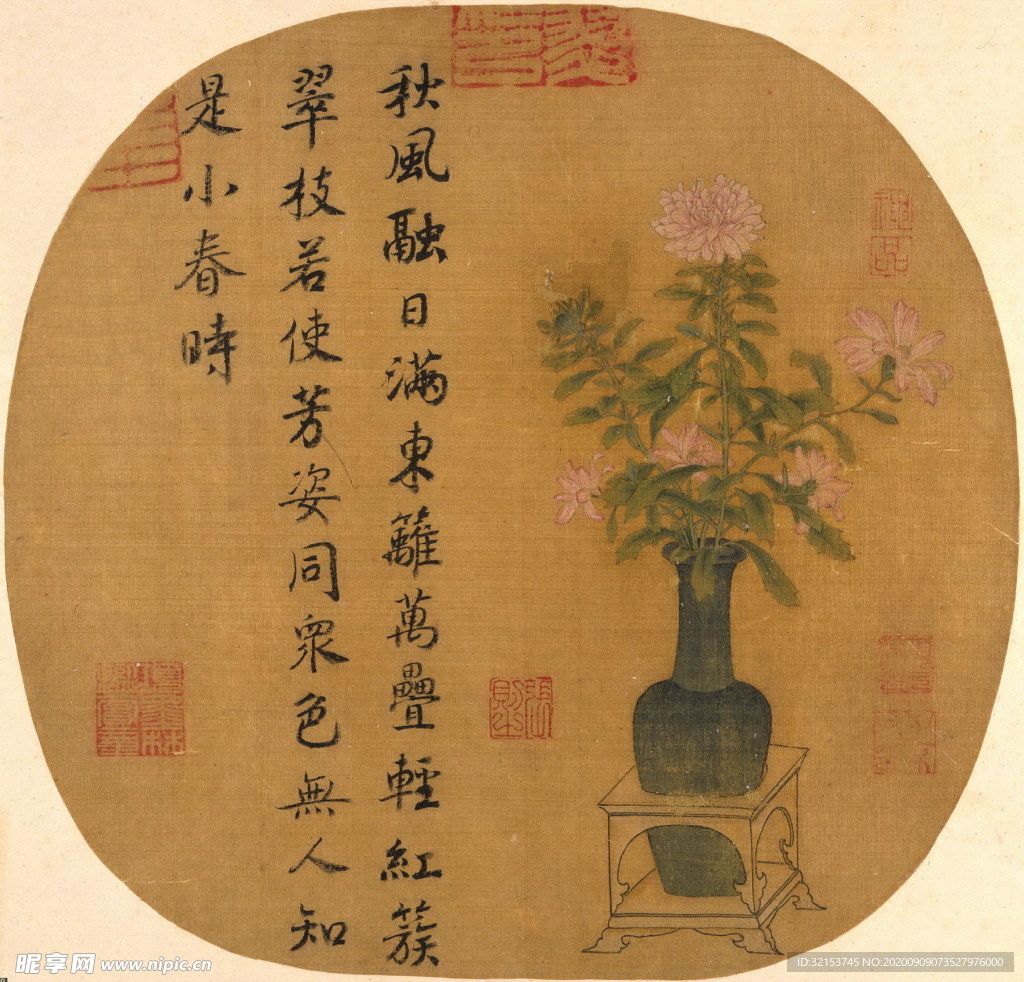 秋風融日滿東籬萬疊輕紅簇
翠枝若使芳姿同衆色無人知
是小春時
神品
昵享网 www.nipic.cn
ID:32153745 NO:20200909073527976000